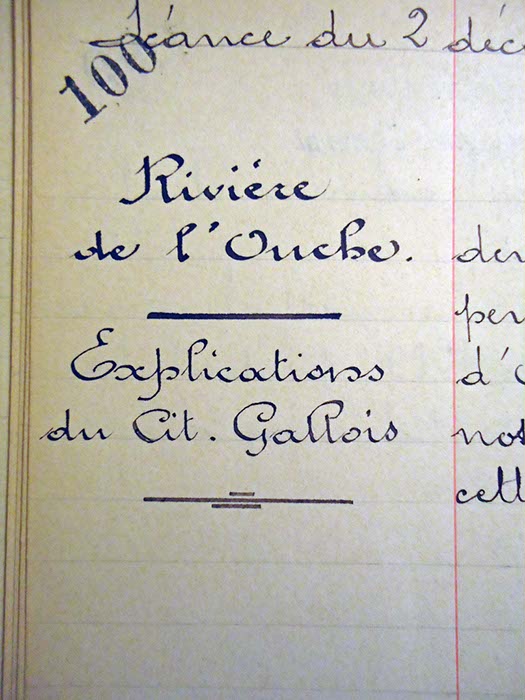 Séance du 2 déc
100
Rivière
de l'Ouche.
Explications
du Cit. Gallois
der
per
d'
not
cett